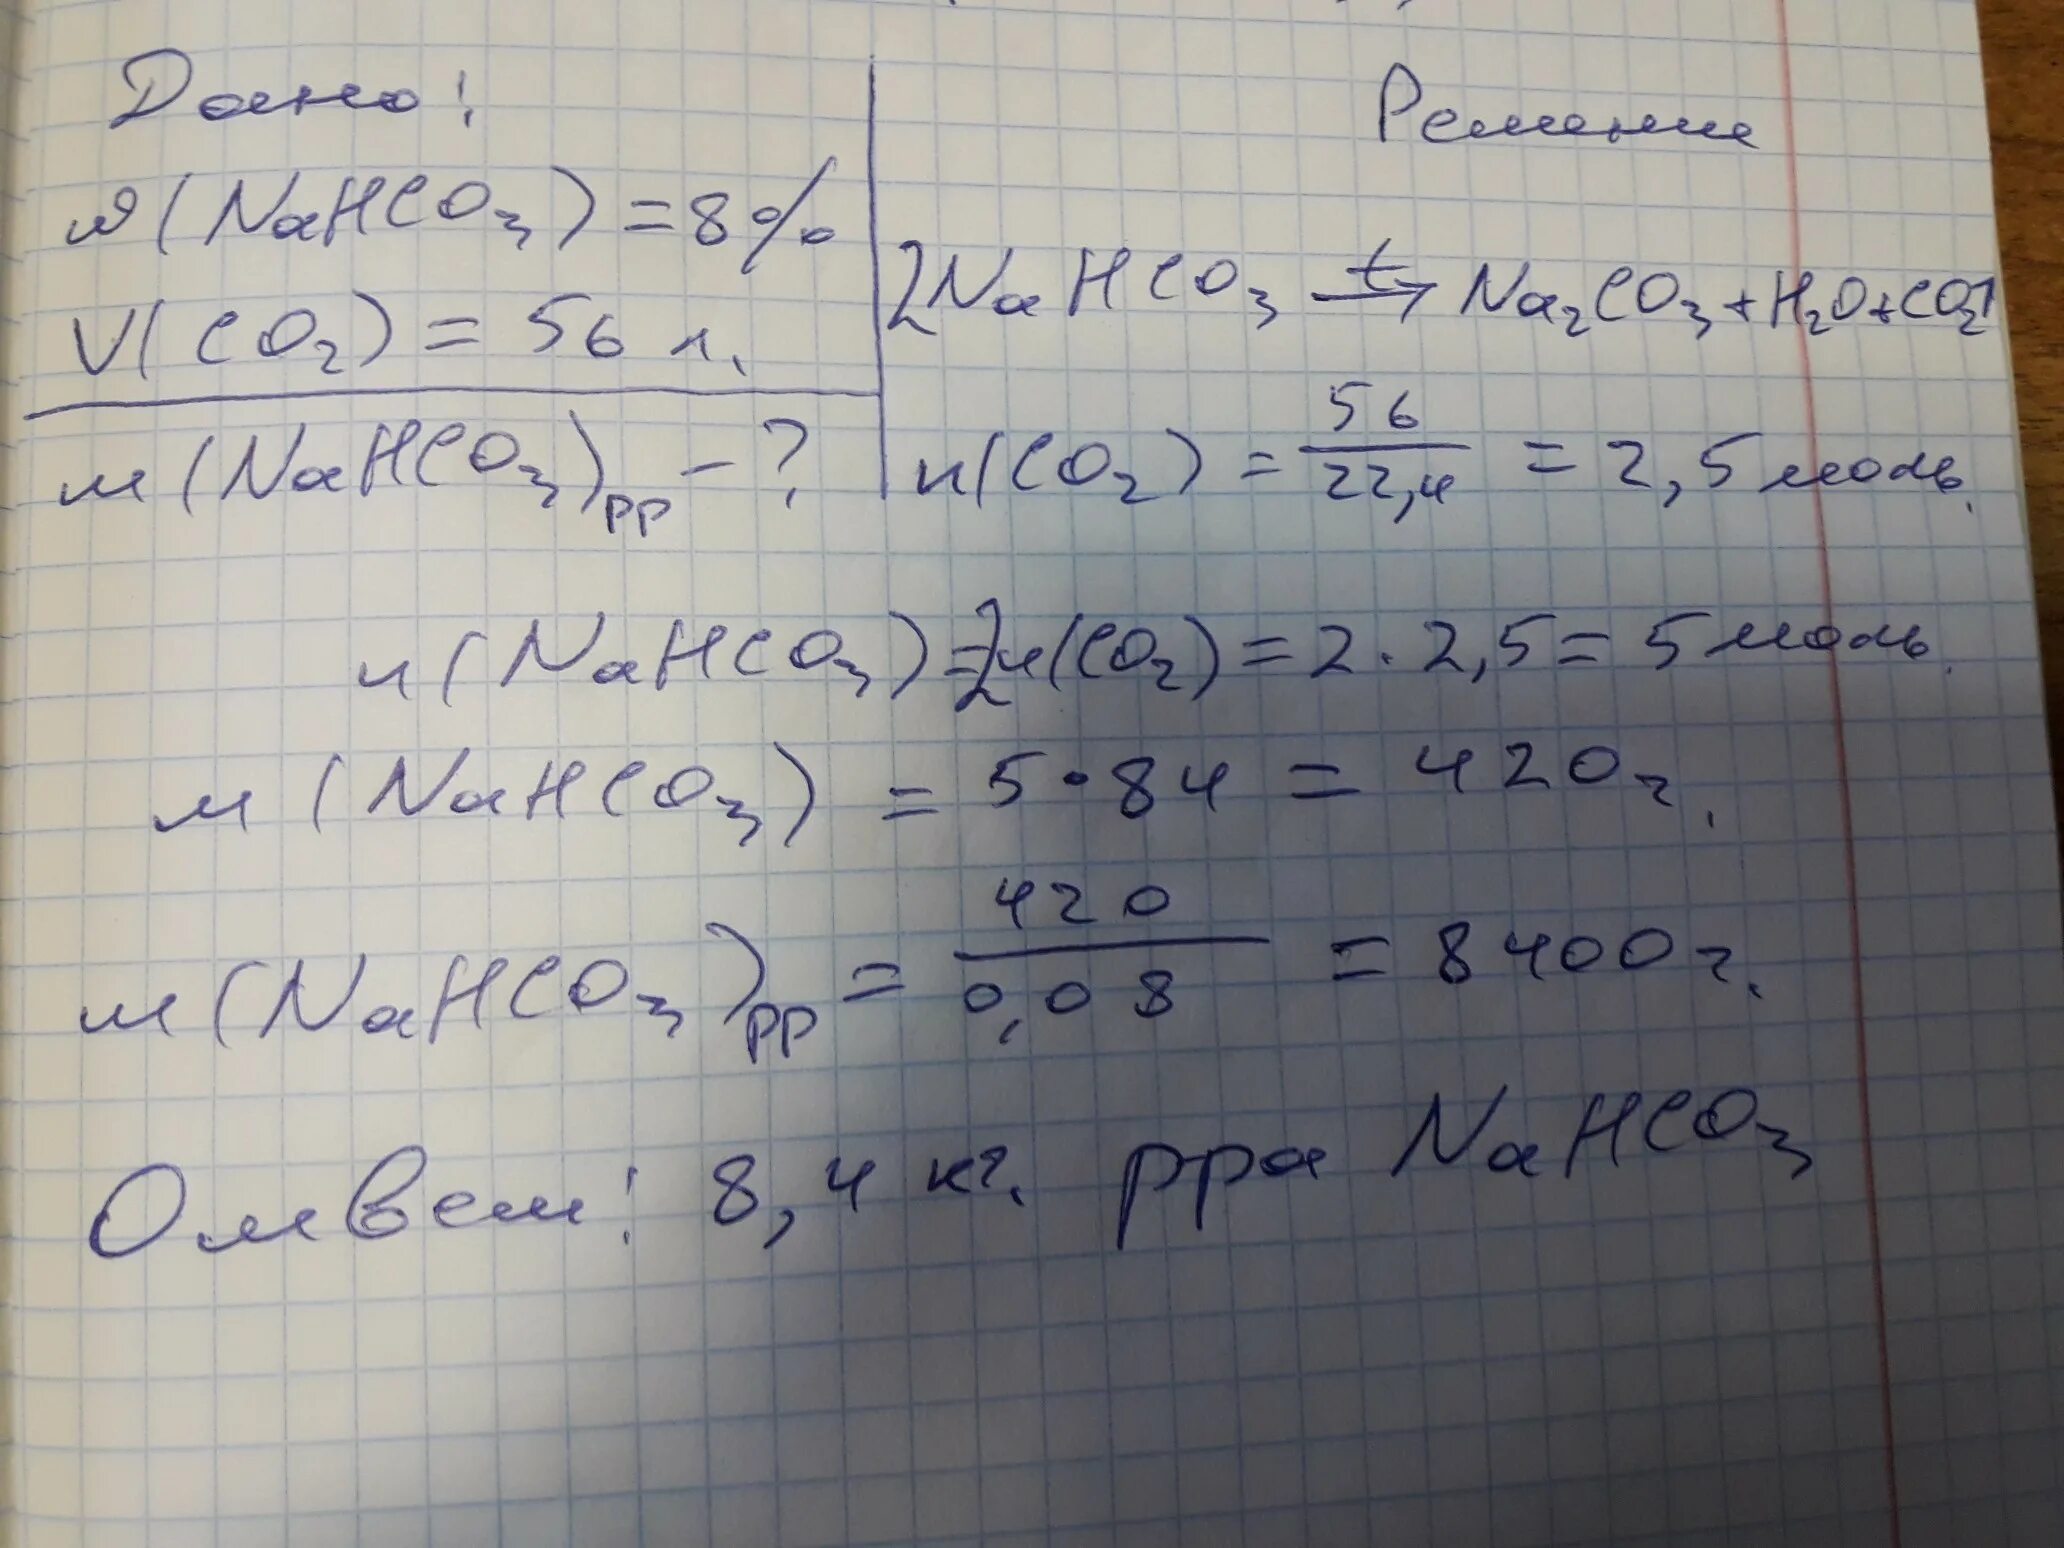 Дано:
ω(NaHCO₃) = 8%
V(CO₂) = 56 л.
м(NaHCO₃)рр - ?
Решение
2NaHCO₃ →t Na₂CO₃ + H₂O + CO₂↑
n(CO₂) = 56/22,4 = 2,5 моль.
n(NaHCO₃) = 2n(CO₂) = 2 · 2,5 = 5 моль.
м(NaHCO₃) = 5 · 84 = 420 г.
м(NaHCO₃)рр = 420/0,08 = 8400 г.
Ответ: 8,4 кг. рра NaHCO₃